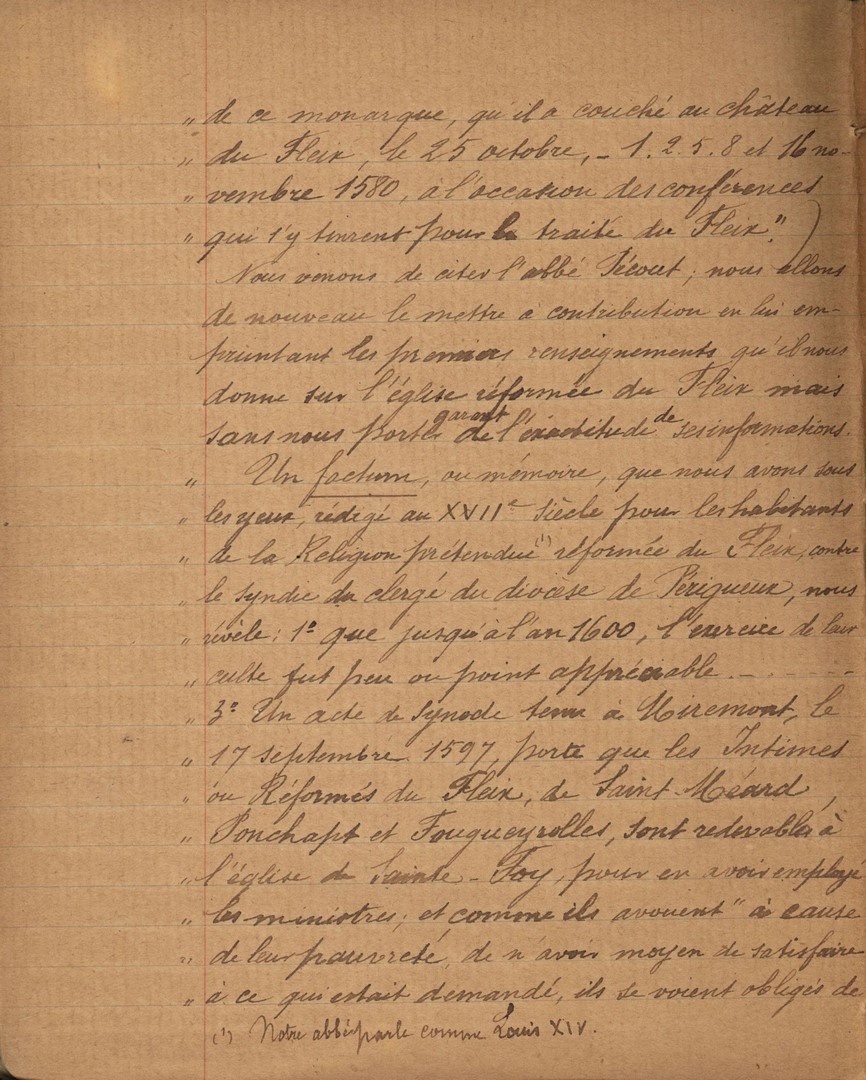 " de ce monarque, qu'il a couché au château
" du Fleix, le 25 octobre, - 1. 2. 5. 8 et 16 no-
" vembre 1580, à l'occasion des conférences
" qui s'y tinrent pour le traité du Fleix." )
Nous venons de citer l'abbé Pécout ; nous allons
de nouveau le mettre à contribution en lui em-
pruntant les premiers renseignements qu'il nous
donne sur l'église réformée du Fleix mais
sans nous porter garant de l'exactitude de ses informations.
" Un factum, ou mémoire, que nous avons sous
" les yeux, rédigé au XVIIe siècle pour les habitants
" de la Religion prétendue (1) réformée du Fleix, contre
" le syndic du clergé du diocèse de Périgueux, nous
" révèle : 1° que jusqu'à l'an 1600, l'exercice de leur
" culte fut peu ou point appréciable - - - - - -
" 3° Un acte de Synode tenu à Miremont, le
" 17 septembre 1597, porte que les Intimes
" ou Réformés du Fleix, de Saint-Méard,
" Ponchapt et Fougueyrolles, sont redevables à
" l'église de Sainte-Foy, pour en avoir employé
" les ministres ; et comme ils avouent " à cause
" de leur pauvreté, de n'avoir moyen de satisfaire
" à ce qui estait demandé, ils se voient obligés de
(1) Notre abbé parle comme Louis XIV.